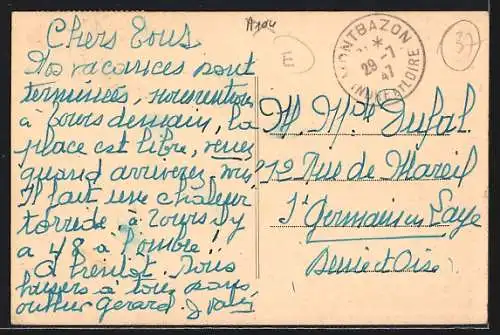 Chers Tous
Nos vacances sont
terminées, nous rentrons
à Tours demain, la
place est libre, venez
quand arriverez-vous
Il fait une chaleur
torride à Tours il y
a 48 à l'ombre !!
A bientôt. Nous
baisers à tous sans
oublier Gérard
A104
E
MONTBAZON
*
29-7
47
INDRE ET LOIRE
37
M. Mme Dufal
72 Rue de Mareil
St Germain en Laye
Seine et Oise